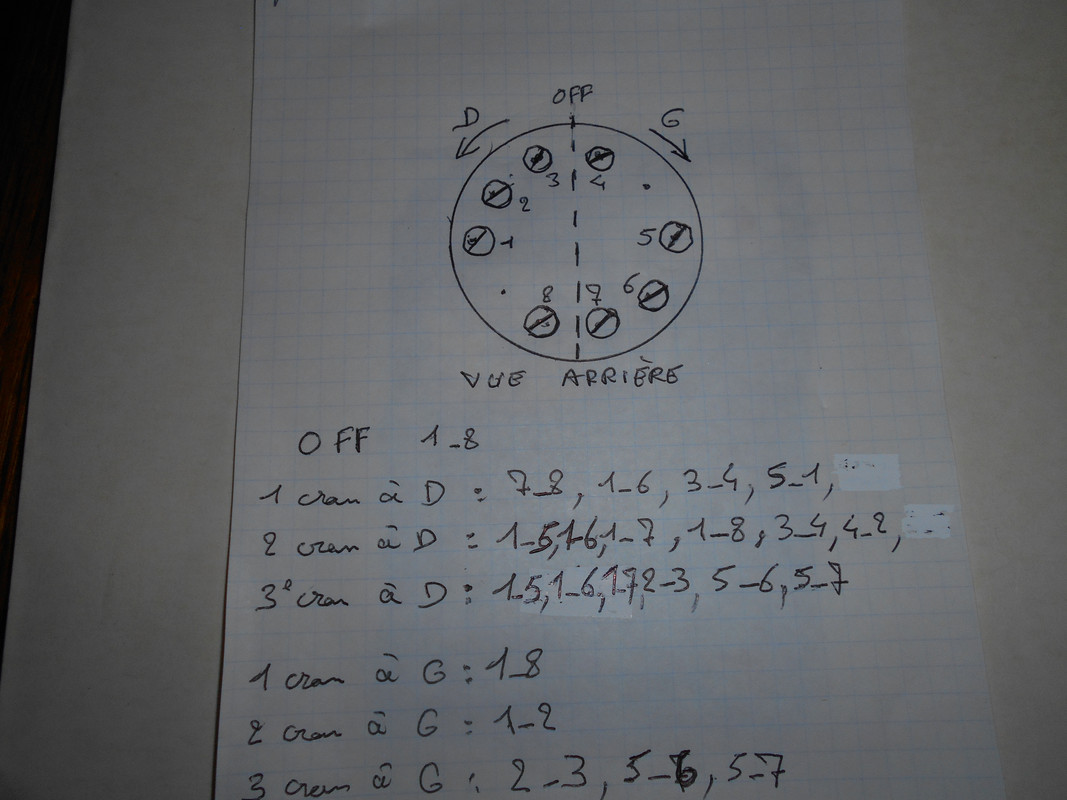 OFF
D G
3 4
2
1 5
6
8 7
VUE ARRIÈRE
OFF 1-8
1 cran à D : 7-8, 1-6, 3-4, 5-1,
2 cran à D : 1-5,1-6,1-7, 1-8, 3-4, 4-2,
3e cran à D : 1-5,1-6,1-7,2-3, 5-6, 5-7
1 cran à G : 1-8
2 cran à G : 1-2
3 cran à G : 2-3, 5-6, 5-7